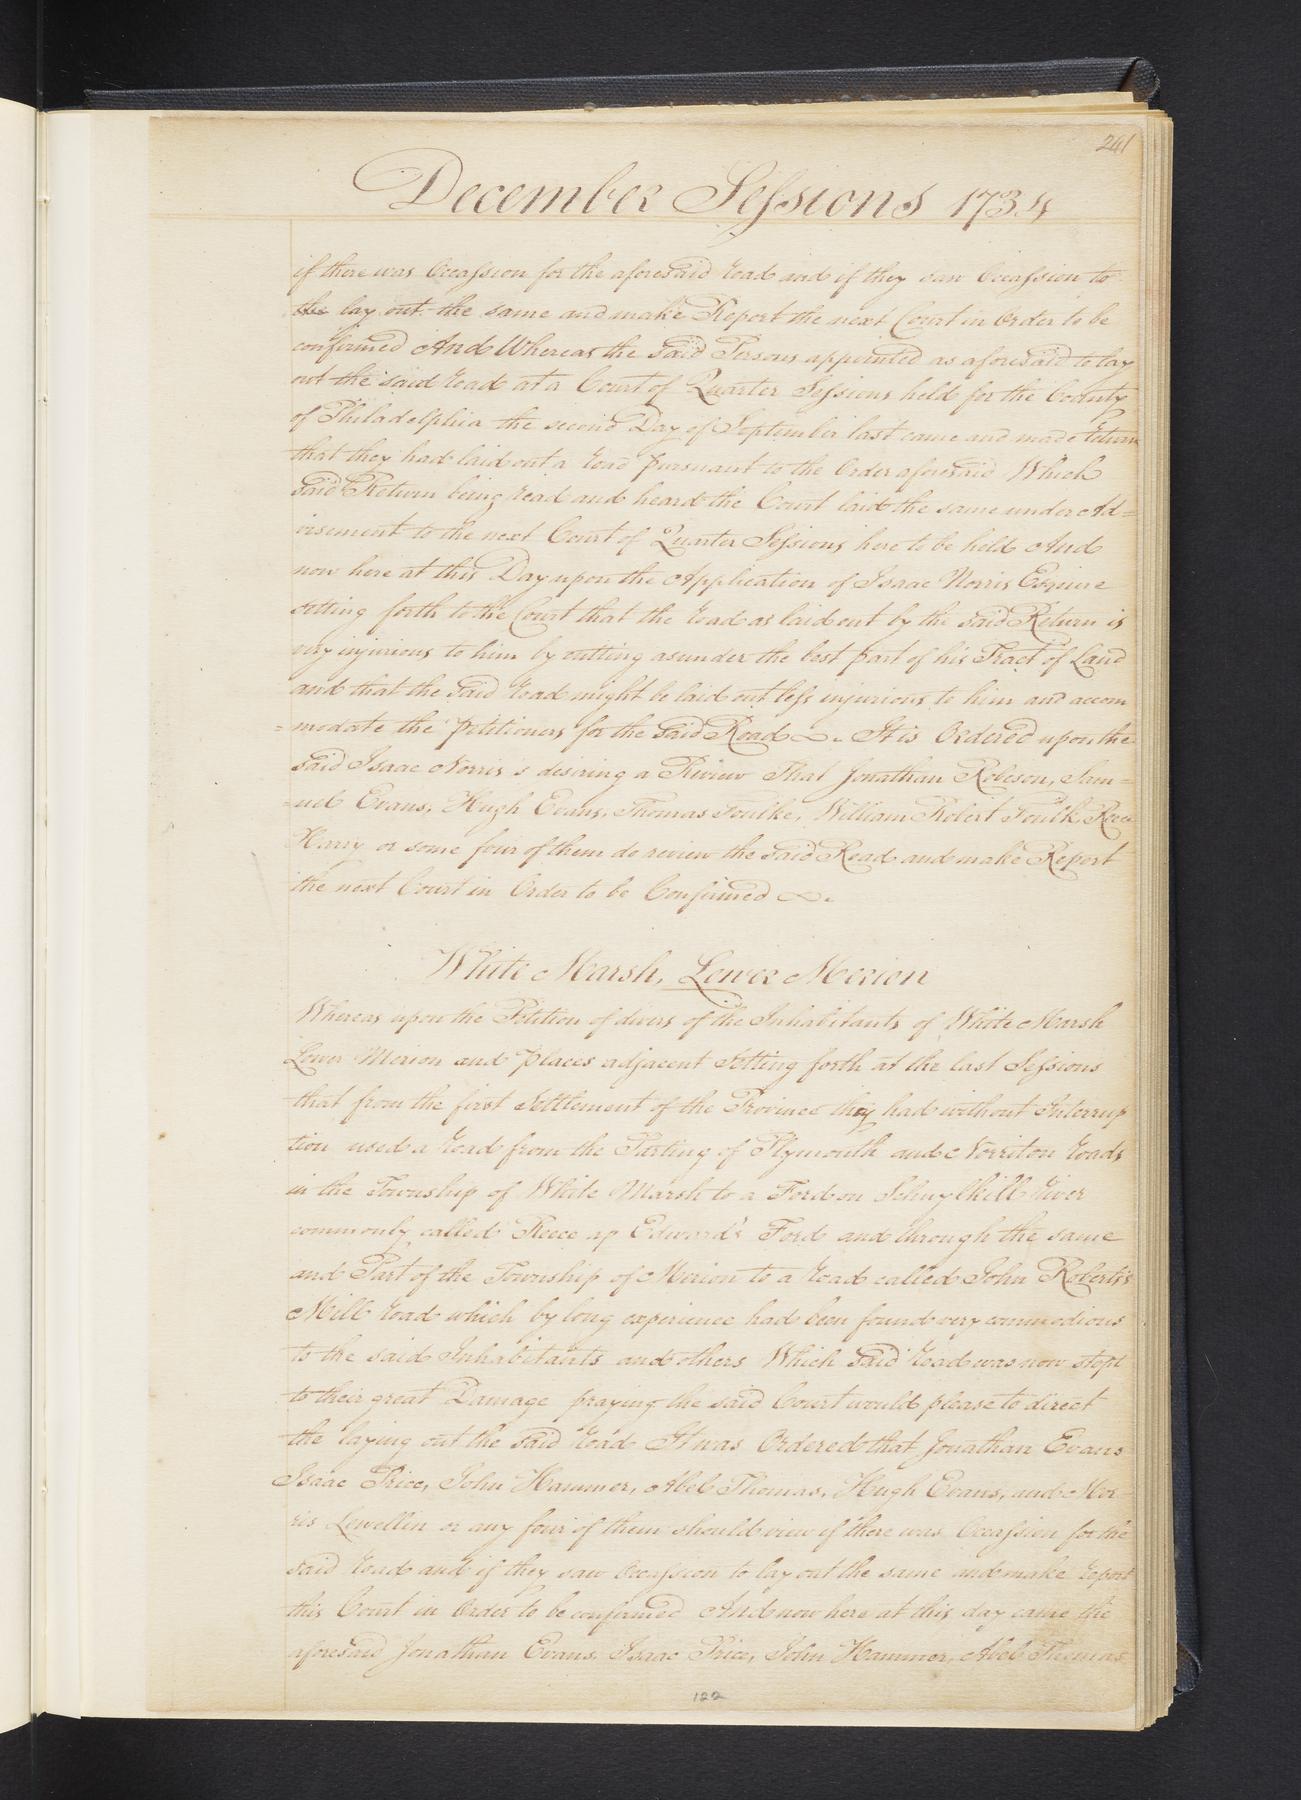 241
December Sessions 1734
if there was Occassion for the aforesaid Road and if they saw Occassion to
the lay out the same and make Report the next Court in Order to be
confirmed And Whereas the said Persons appointed as aforesaid to lay
out the said Road at a Court of Quarter Sessions held for the County
of Philadelphia the second Day of September last came and made Return
that they had laid out a Road pursuant to the Order aforesaid Which
said Return being read and heard the Court laid the same under Ad=
visement to the next Court of Quarter Sessions here to be held And
now here at this Day upon the Application of Isaac Norris Esquire
setting forth to the Court that the Road as laid out by the said Return is
very injurious to him by cutting asunder the best part of his Tract of Land
and that the said Road might be laid out less injurious to him and accom
=modate the Petitioners for the said Road &c. It is Ordered upon the
said Isaac Norris's desiring a Review That Jonathan Robeson, Sam=
=uel Evans, Hugh Evans, Thomas Foulke, William Robert Foulk Rees
Harry or some four of them do review the said Road and make Report
the next Court in Order to be Confirmed &c.
White Marsh, Lower Merion
Whereas upon the Petition of divers of the Inhabitants of White Marsh
Lower Merion and places adjacent Setting forth at the last Sessions
that from the first Settlement of the Province they had without Interrup
tion used a Road from the Parting of Plymouth and Norriton Roads
in the Township of White Marsh to a Ford on Schuylkill River
commonly called Reece ap Edward's Ford and through the same
and Part of the Township of Merion to a Road called John Roberts's
Mill Road which by long experience had been found very commodious
to the said Inhabitants and others Which said Road was now stopt
to their great Damage praying the said Court would please to direct
the laying out the said Road It was Ordered that Jonathan Evans
Isaac Price, John Hammer, Abel Thomas, Hugh Evans, and Mor
ris Lewellin or any four of them should view if there was Occassion for the
said Road and if they saw Occassion to lay out the same and make Report
this Court in Order to be confirmed And now here at this day came the
aforesaid Jonathan Evans, Isaac Price, John Hammer, Abel Thomas
122